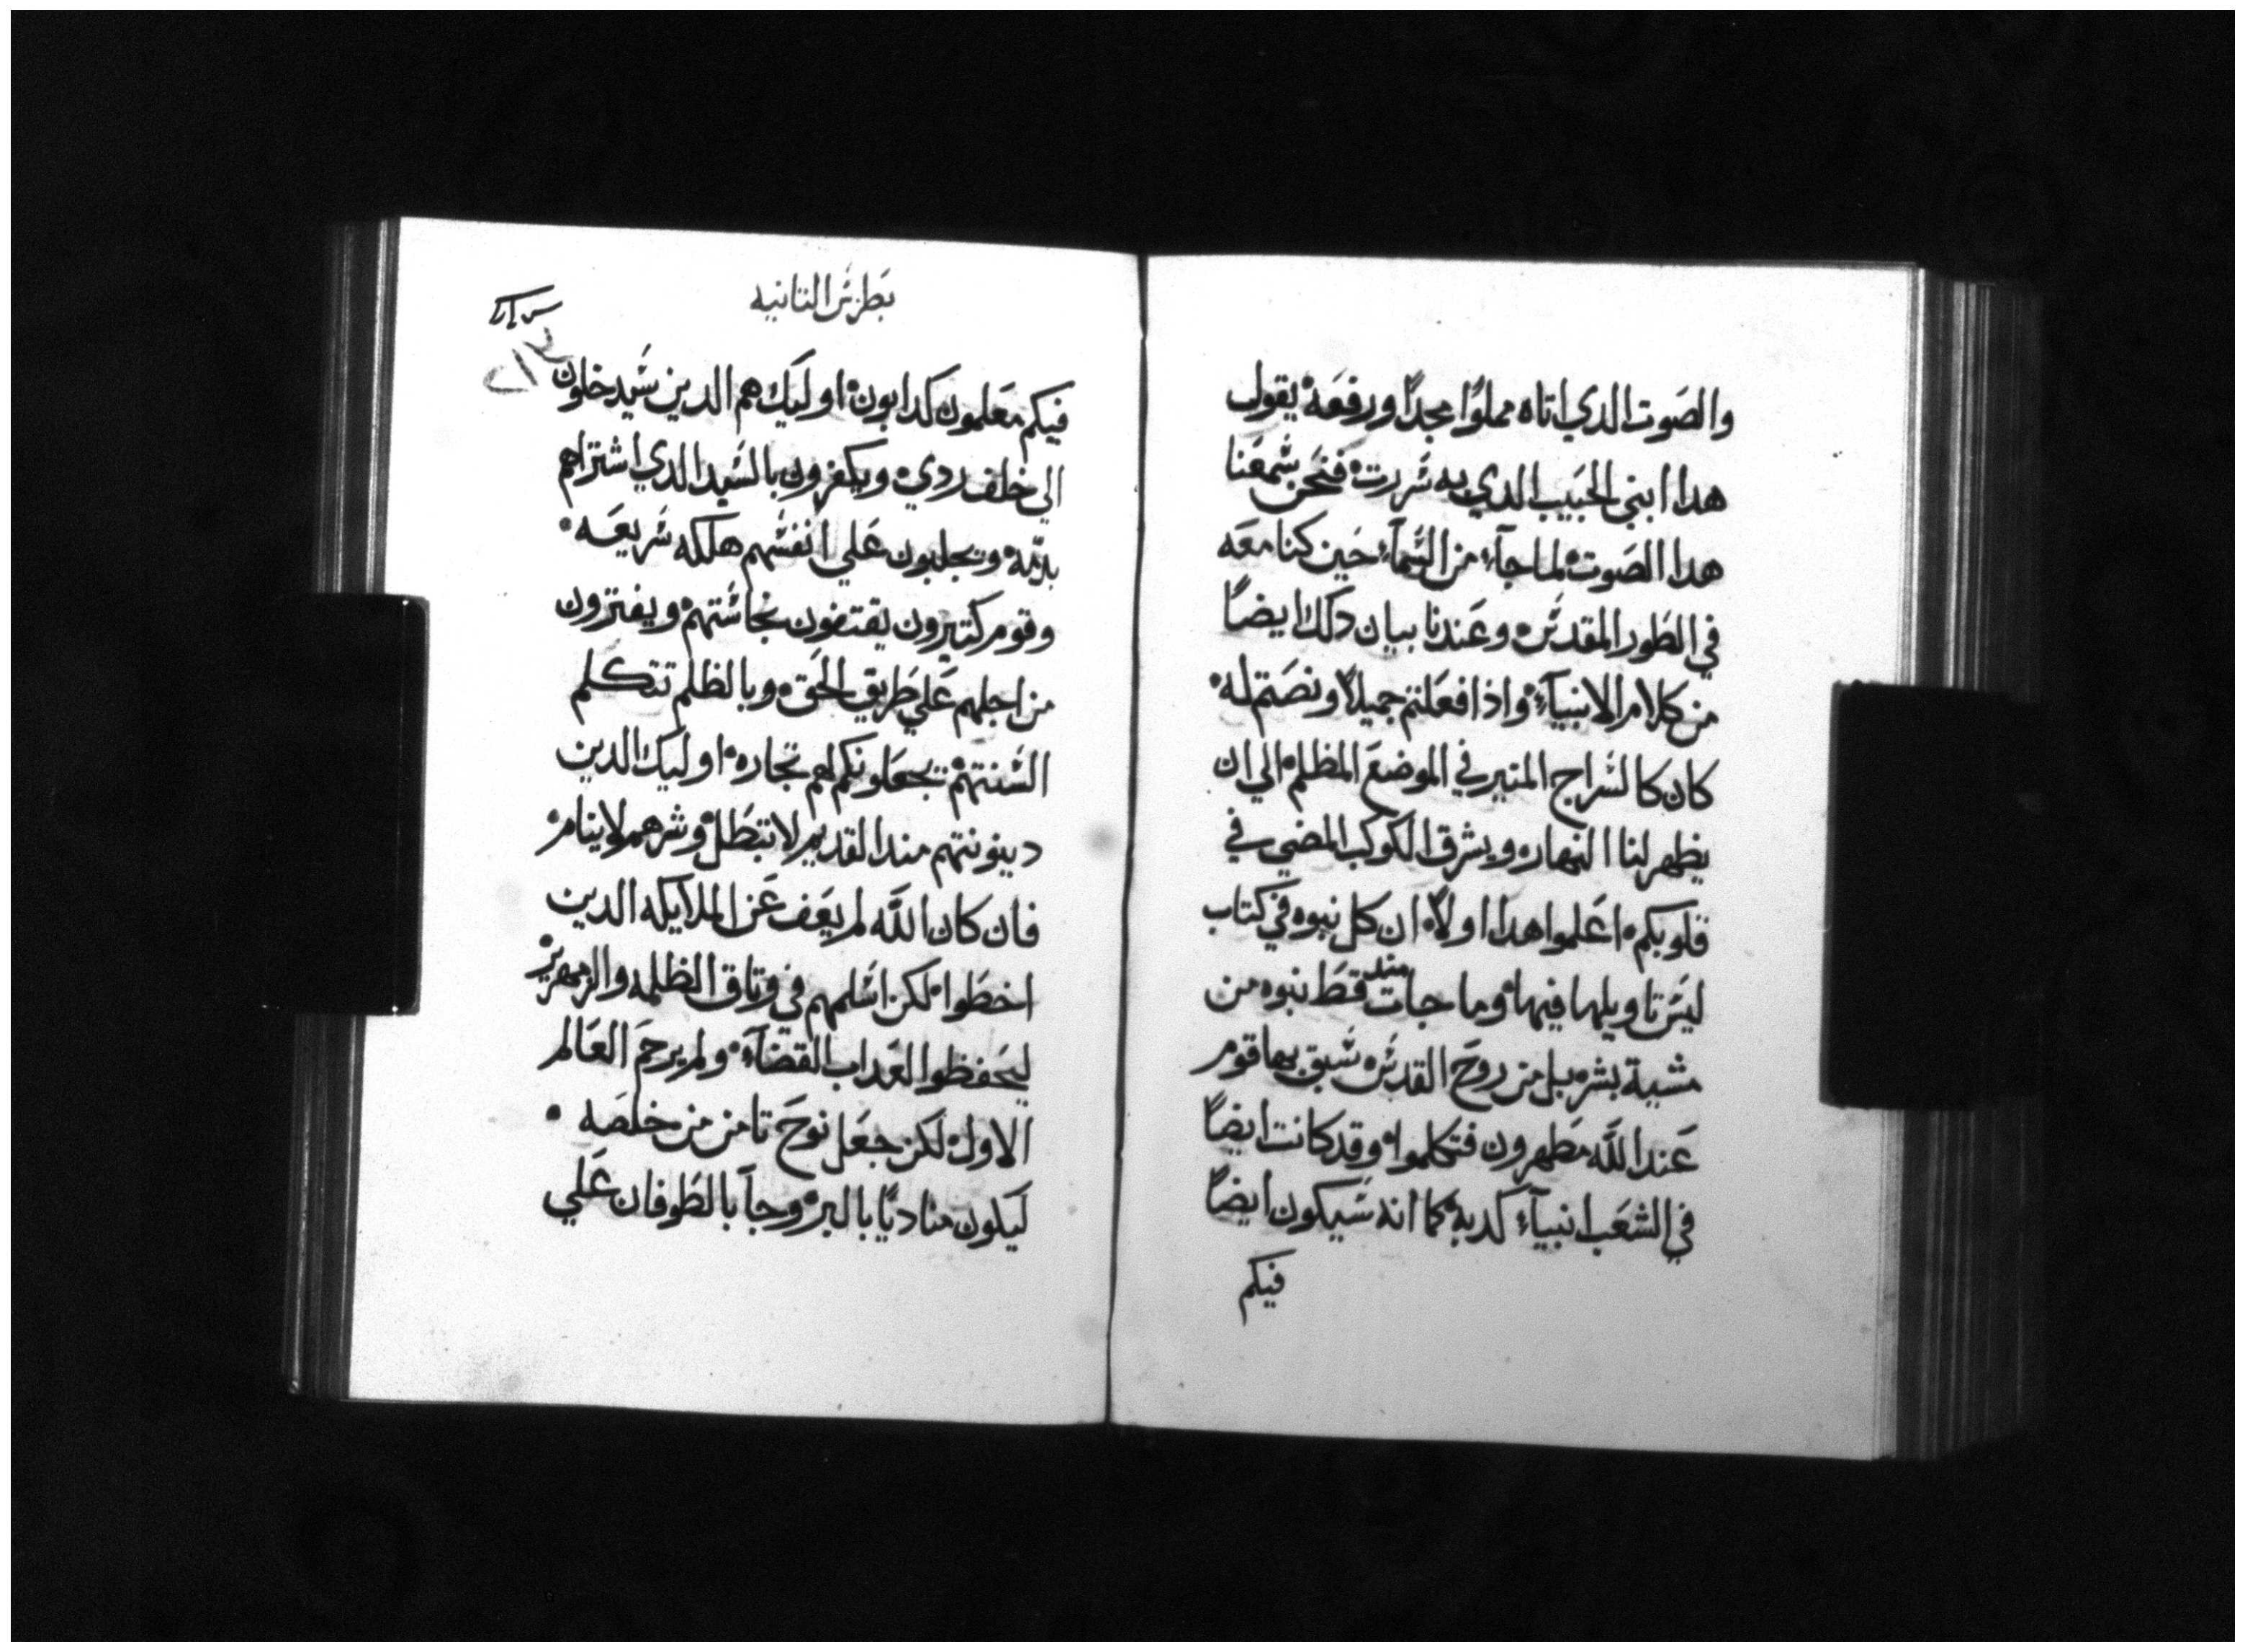 والصَوت الدي اتاه مملوًا مجدًا ورفعَة يقول
هدا ابني الحَبيب الدي به سُررت فنحَن سَمعَنا
هدا الصَوت لما جآء من السَمآء حَين كنا معَه
في الطَور المقدسَ وعَندنا بيان دلك ايضًا
من كلام الانبيآء واذا فعَلتم جميلاً ونصَتم له
كان كالسَراج المنير في الموضعَ المظلم الي ان
يظهر لنا النهار ويشرق الكوكب المضي في
قلوبكم اعَلموا هدا اولاً ان كل نبوه في كتاب
ليسَ تاويلها فيها وما جات مند قطَ نبوه من
مشية بشر بل من روحَ القدسَ سَبق بها قوم
عَند اللَّه مطَهرون فتكلموا وقد كانت ايضًا
في الشعَب انبيآء كدبة كما انه سَيكون ايضًا
فيكم
بَطرسَ التانيه
فيكم معَلمون كدابون اوليَك هم الدين سَيدخلون
الي خلف ردي ويكفرون بالسَيد الدي اشتراهم
بدمّه ويجلبون عَلي انفسَهم هلكه سَريعَه
وقوم كتيرون يقتفون نجاسَتهم ويفترون
من اجلهم عَلي طَريق الحَق وبالظلم تتكلم
السَنتهم تجعَلونكم لهم تجاره اوليك الدين
دينونتهم مند القديم لا تبطَل وشرهم لا ينام
فان كان اللَّه لم يعَف عَن الملايكه الدين
اخطَوا لكن اسَلمهم في وتاق الظلمه والزمهرير
ليحَفظوا لعَداب القضآء ولم يرحمَ العَالم
الاول لكن جعَل نوحَ تامن من خلصَه
ليكون مناديًا بالبر وجآ بالطَوفان عَلي